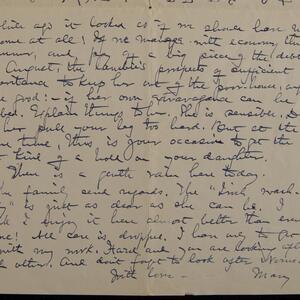 while ago it looked as if we should have no
come at all! If we manage with economy, the
summer, and pay of a big piece of the debt
August, the Lambie's prospects of sufficient
portance to keep her out of the poor-house, are
good: - if her own extravagance can be
bed. Explain things to her. She is sensible. Don't
her pull your leg too hard. But at the
same time, this is your occasion to get the
kind of a hold on your daughter.
There is a gentle rain here today.
The family send regards. The "Irish wash
" is just as dear as she can be. I
I enjoy it here almost better than ever
me! All care is dropped. I have only to get
with my work. Hazel and you are looking after
other. And don't forget to look after
With love - Mary